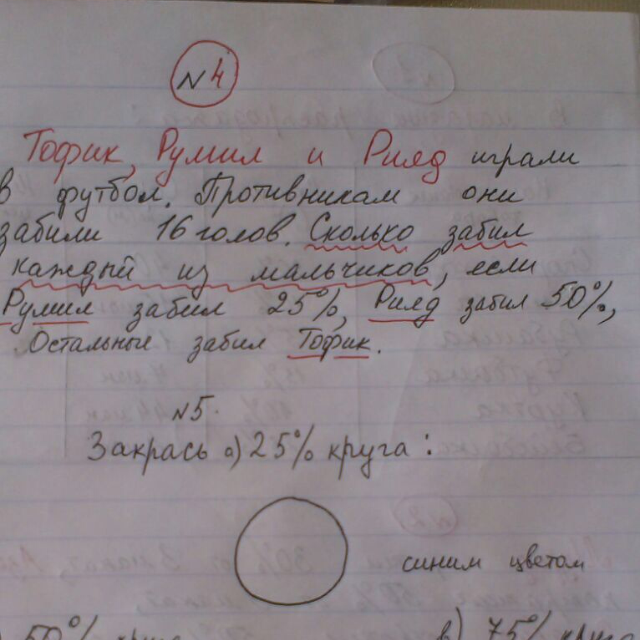 N 4
Тофик, Румил и Рияд играли
в футбол. Противникам они
забили 16 голов. Сколько забил
каждый из мальчиков, если
Румил забил 25%, Рияд забил 50%,
Остальные забил Тофик.
N5.
Закрась а) 25% круга:
синим цветом
50% круга в) 75% круга